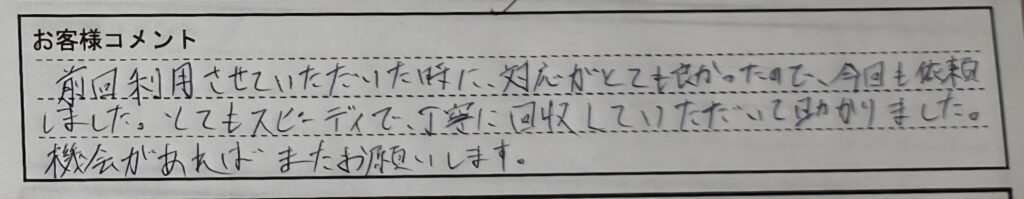 お客様コメント
前回利用させていただいた時に、対応がとても良かったので、今回も依頼
しました。とてもスピーディで、丁寧に回収していただいて助かりました。
機会があれば またお願いします。